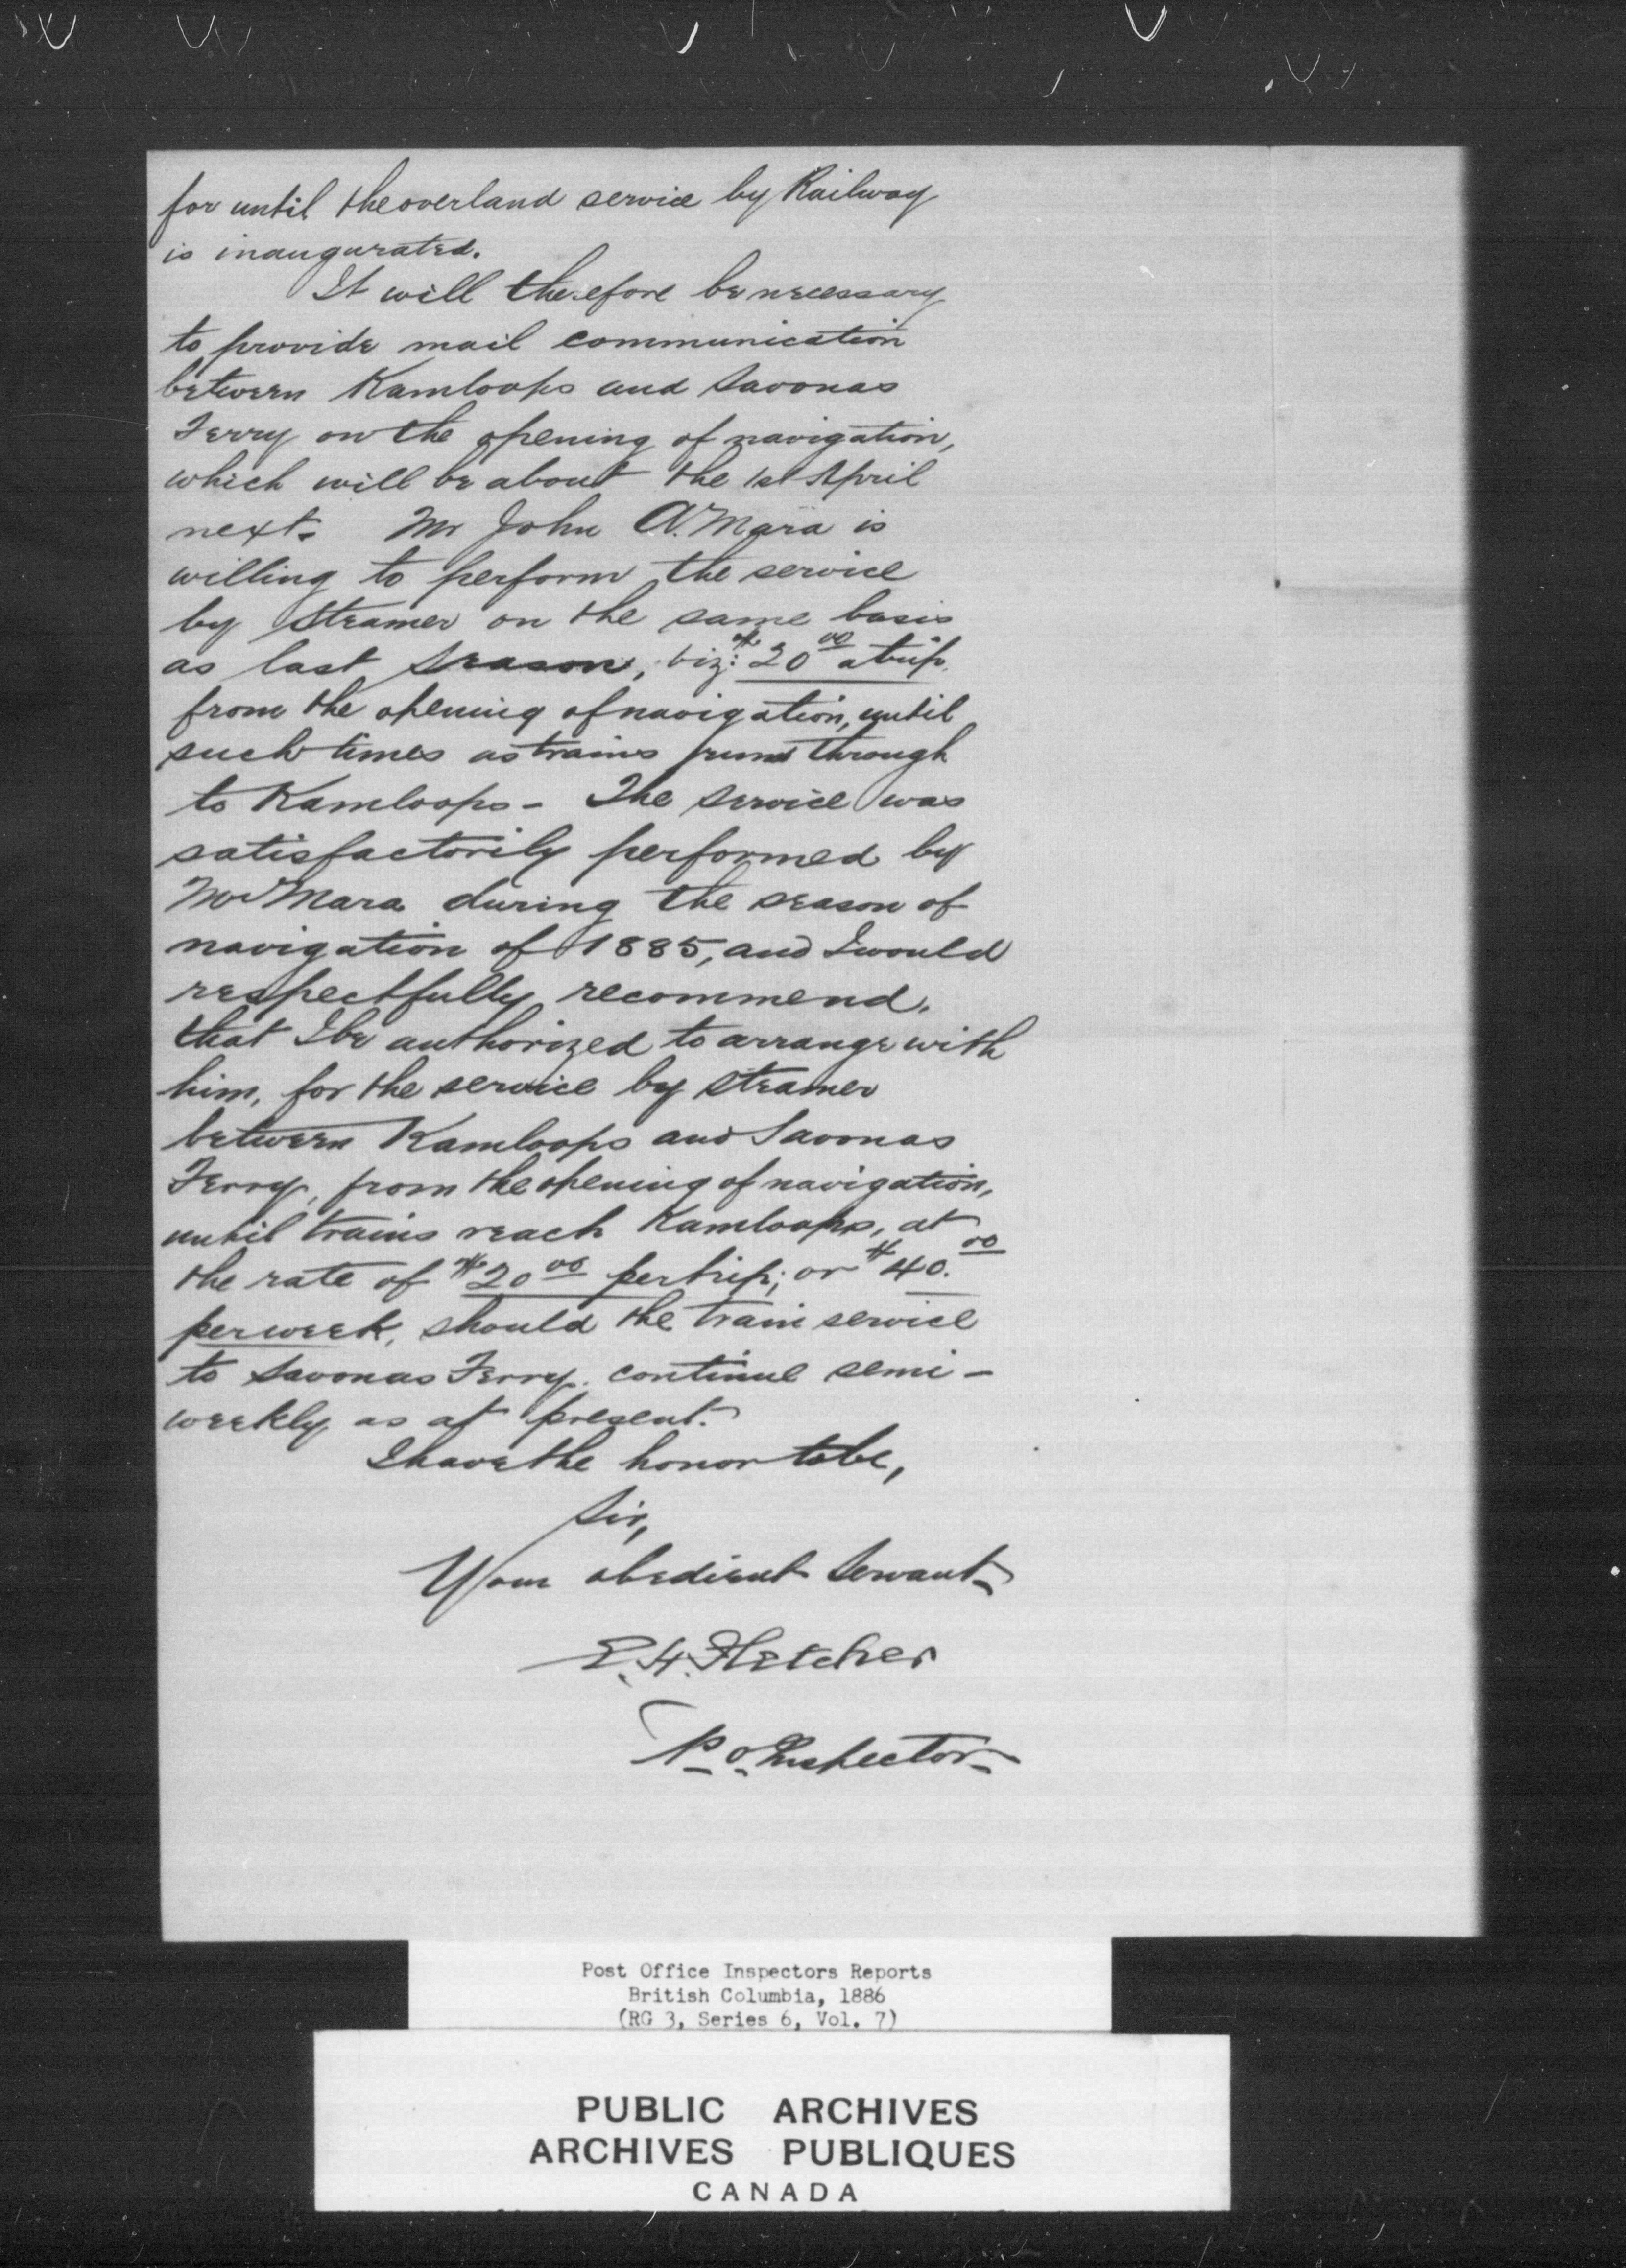 for until the overland service by Railway
is inaugurated.
It will therefore be necessary
to provide mail communication
between Kamloops and Savonas
Ferry on the opening of navigation,
which will be about the 1st April
next. Mr John A. Mara is
willing to perform the service
by Steamer on the same basis
as last season, viz: $20 00 a trip.
from the opening of navigation, until
such times as trains run through
to Kamloops - The service was
satisfactorily performed by
Mr Mara during the season of
navigation of 1885, and I would
respectfully recommend.
that I be authorized to arrange with
him, for the service by steamer
between Kamloops and Savonas
Ferry, from the opening of navigation,
until trains reach Kamloops, at
the rate of $20 00 per trip; or $40. 00
per week, should the train service
to Savonas Ferry. continue semi-
weekly as at present.
I have the honor to be,
Sir,
Your obedient Servant
E. H. Fletcher
P. O. Inspector
Post Office Inspectors Reports
British Columbia, 1886
(RG 3, Series 6, Vol. 7)
PUBLIC ARCHIVES
ARCHIVES PUBLIQUES
CANADA